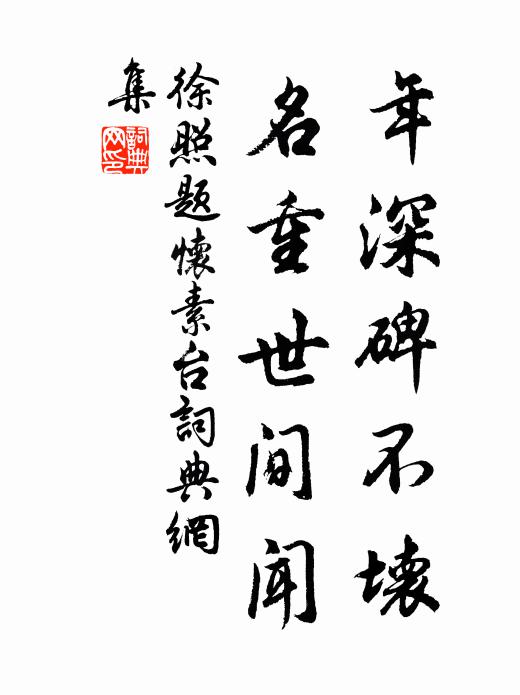 年深碑不壞
名重世间闻
徐照题懷素台詞典網
集
詞典网印